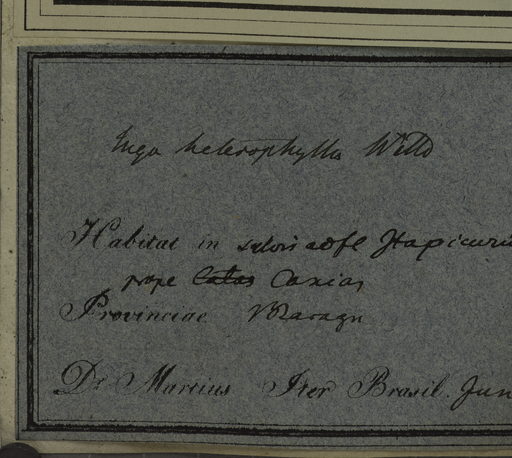 Inga heterophylla Willd
Habitat in sylvis ad fl Itapicurú
prope Caxias
Provinciae Maragn
Dr. Martius Iter Brasil. Jun